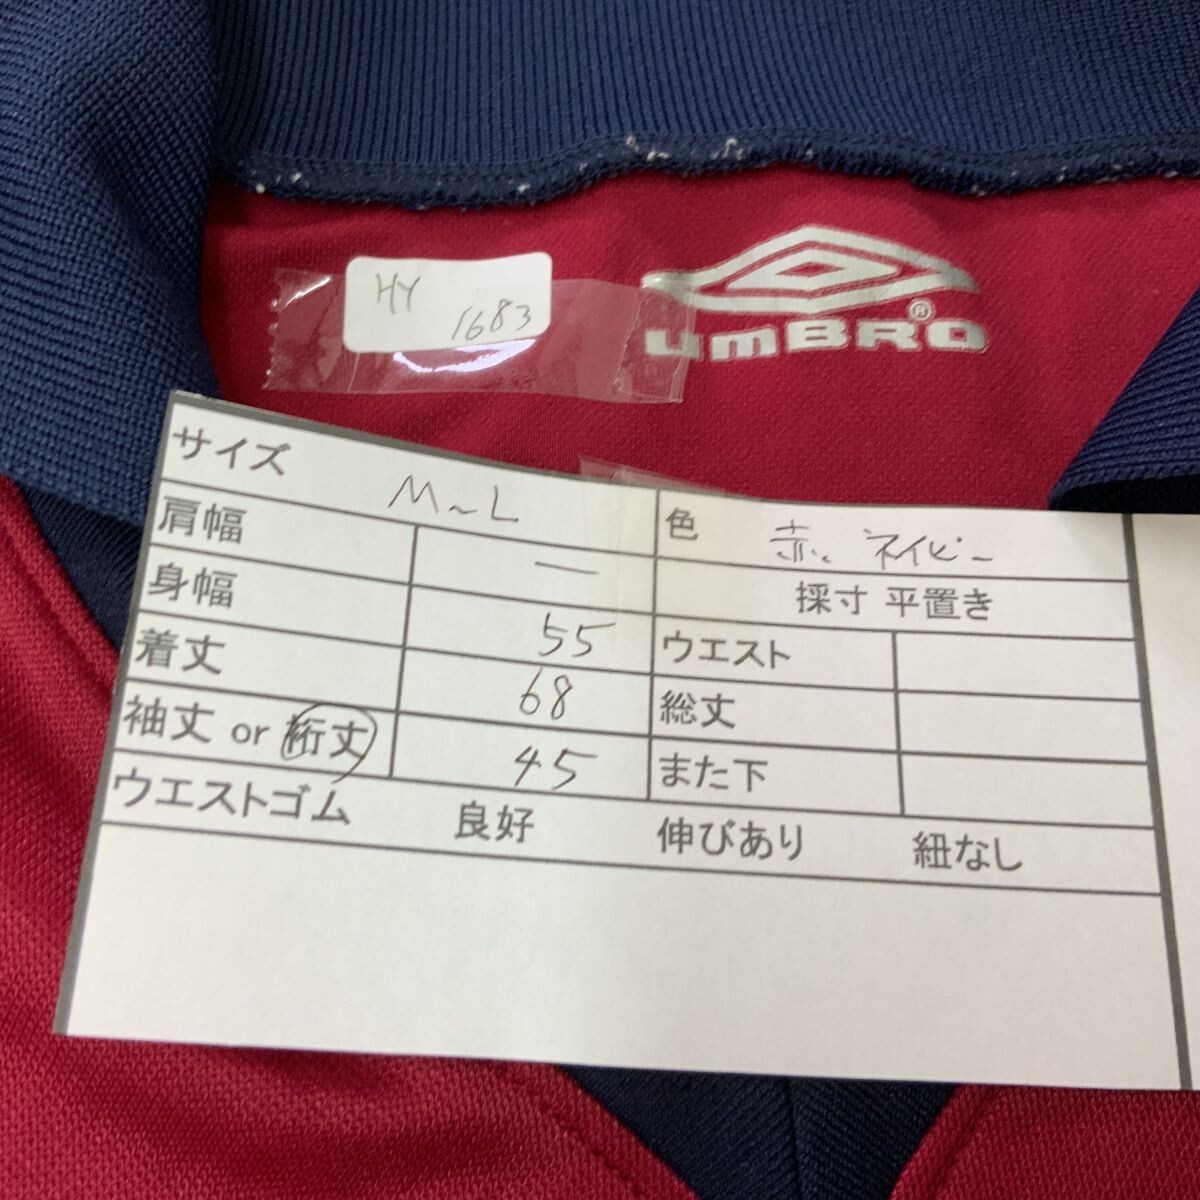 HY
1683
UMBRO®
サイズ M~L 色 赤、ネイビー
肩幅 ー 採寸 平置き
身幅 55 ウエスト
着丈 68 総丈
袖丈 or 裄丈 45 また下
ウエストゴム 良好 伸びあり 紐なし